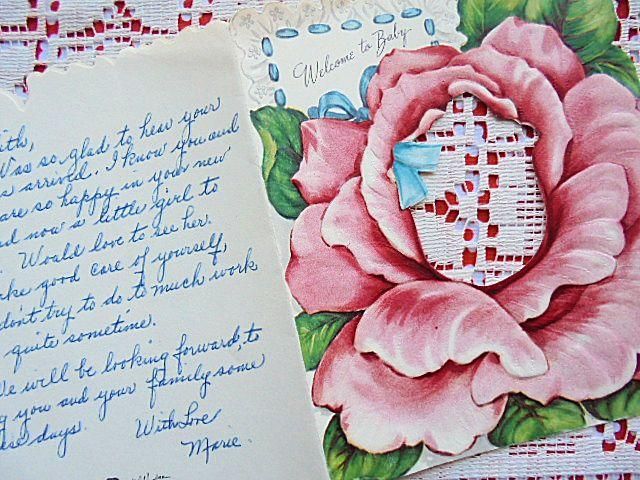 Welcome to Baby
ith,
Was so glad to hear your
arrived. I know you and
are so happy in your new
d now a little girl to
. Would love to see her.
ake good care of yourself,
don't try to do to much work
quite sometime.
We will be looking forward, to
g you and your family some
ese days. With Love
Marie.